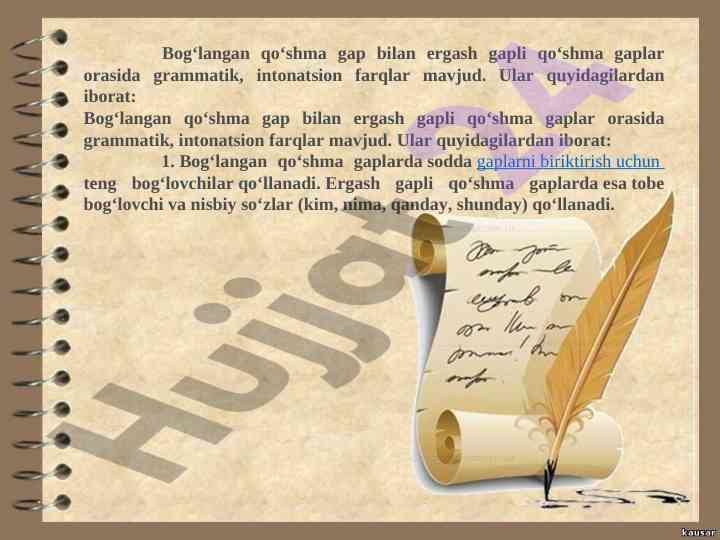 Bog‘langan qo‘shma gap bilan ergash gapli qo‘shma gaplar
orasida grammatik, intonatsion farqlar mavjud. Ular quyidagilardan
iborat:
Bog‘langan qo‘shma gap bilan ergash gapli qo‘shma gaplar orasida
grammatik, intonatsion farqlar mavjud. Ular quyidagilardan iborat:
1. Bog‘langan qo‘shma gaplarda sodda gaplarni biriktirish uchun
teng bog‘lovchilar qo‘llanadi. Ergash gapli qo‘shma gaplarda esa tobe
bog‘lovchi va nisbiy so‘zlar (kim, nima, qanday, shunday) qo‘llanadi.
Hujjat24
kausar